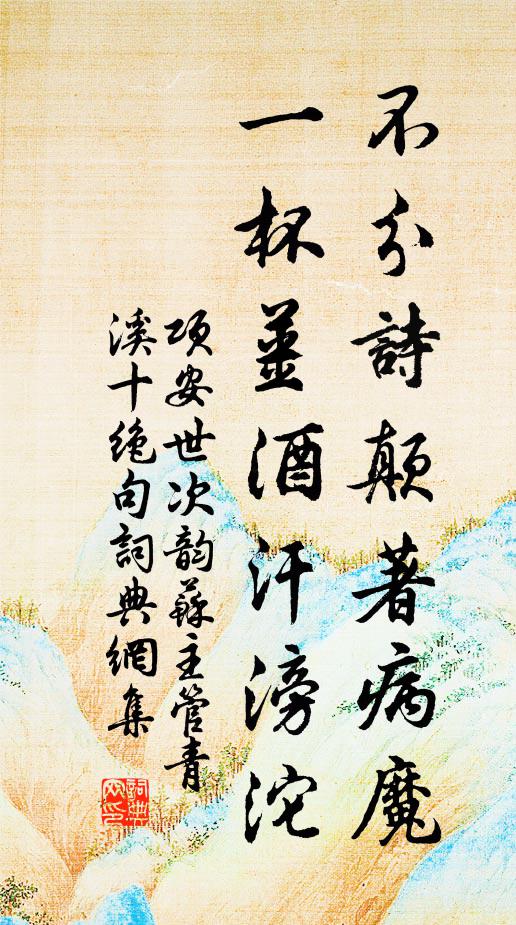 不分詩顛著病魔
一杯薑酒汗滂沱
項安世次韵蘇主管青
溪十絶句詞典網集
詞典网印